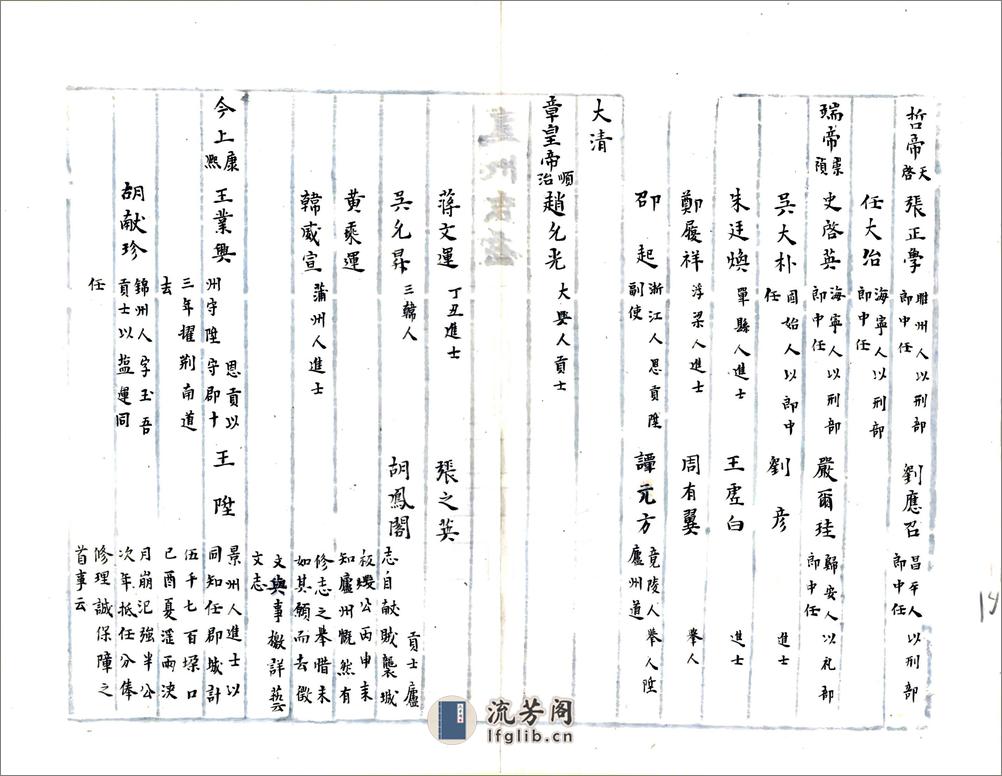 哲帝天啓 張正學 睢州人以刑部郎中任 劉應召 昌平人以刑部郎中任
任大治 海寧人以刑部郎中任
瑞帝崇禎 史啓英 海寧人以刑部郎中任 嚴爾珪 歸安人以礼部郎中任
吳大朴 固始人以郎中任 劉彦 進士
朱廷煥 單縣人進士 王虛白 進士
鄭履祥 浮梁人進士 周有翼 舉人
邵起 浙江人恩貢陞副使 譚元方 竟陵人舉人陞廬州道
大清
章皇帝順治 趙允光 大興人貢士
蔣文運 丁丑進士 張之英
吳允昇 三韓人 胡鳳閣 貢士廬志自献賊襲城板燬公丙申来知廬州慨然有修志之舉惜未如其願而去徵文與事檄詳藝文志
黄乘運
韓威宣 蒲州人進士
今上康熙 王業興 恩貢以州守陞守郡十三年擢荆南道去 王陞 景州人進士以同知任郡城計伍千七百垜口己酉夏滛雨決月崩汜強半公次年抵任分俸修理誠保障之首事云
胡献珍 錦州人字玉吾貢士以盐運同任
14
流芳阁
lfglib.cn